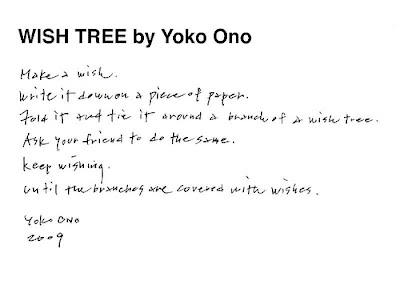 WISH TREE by Yoko Ono
Make a wish.
Write it down on a piece of paper.
Fold it and tie it around a branch of a wish tree.
Ask your friend to do the same.
Keep wishing.
Until the branches are covered with wishes.
Yoko Ono
2009